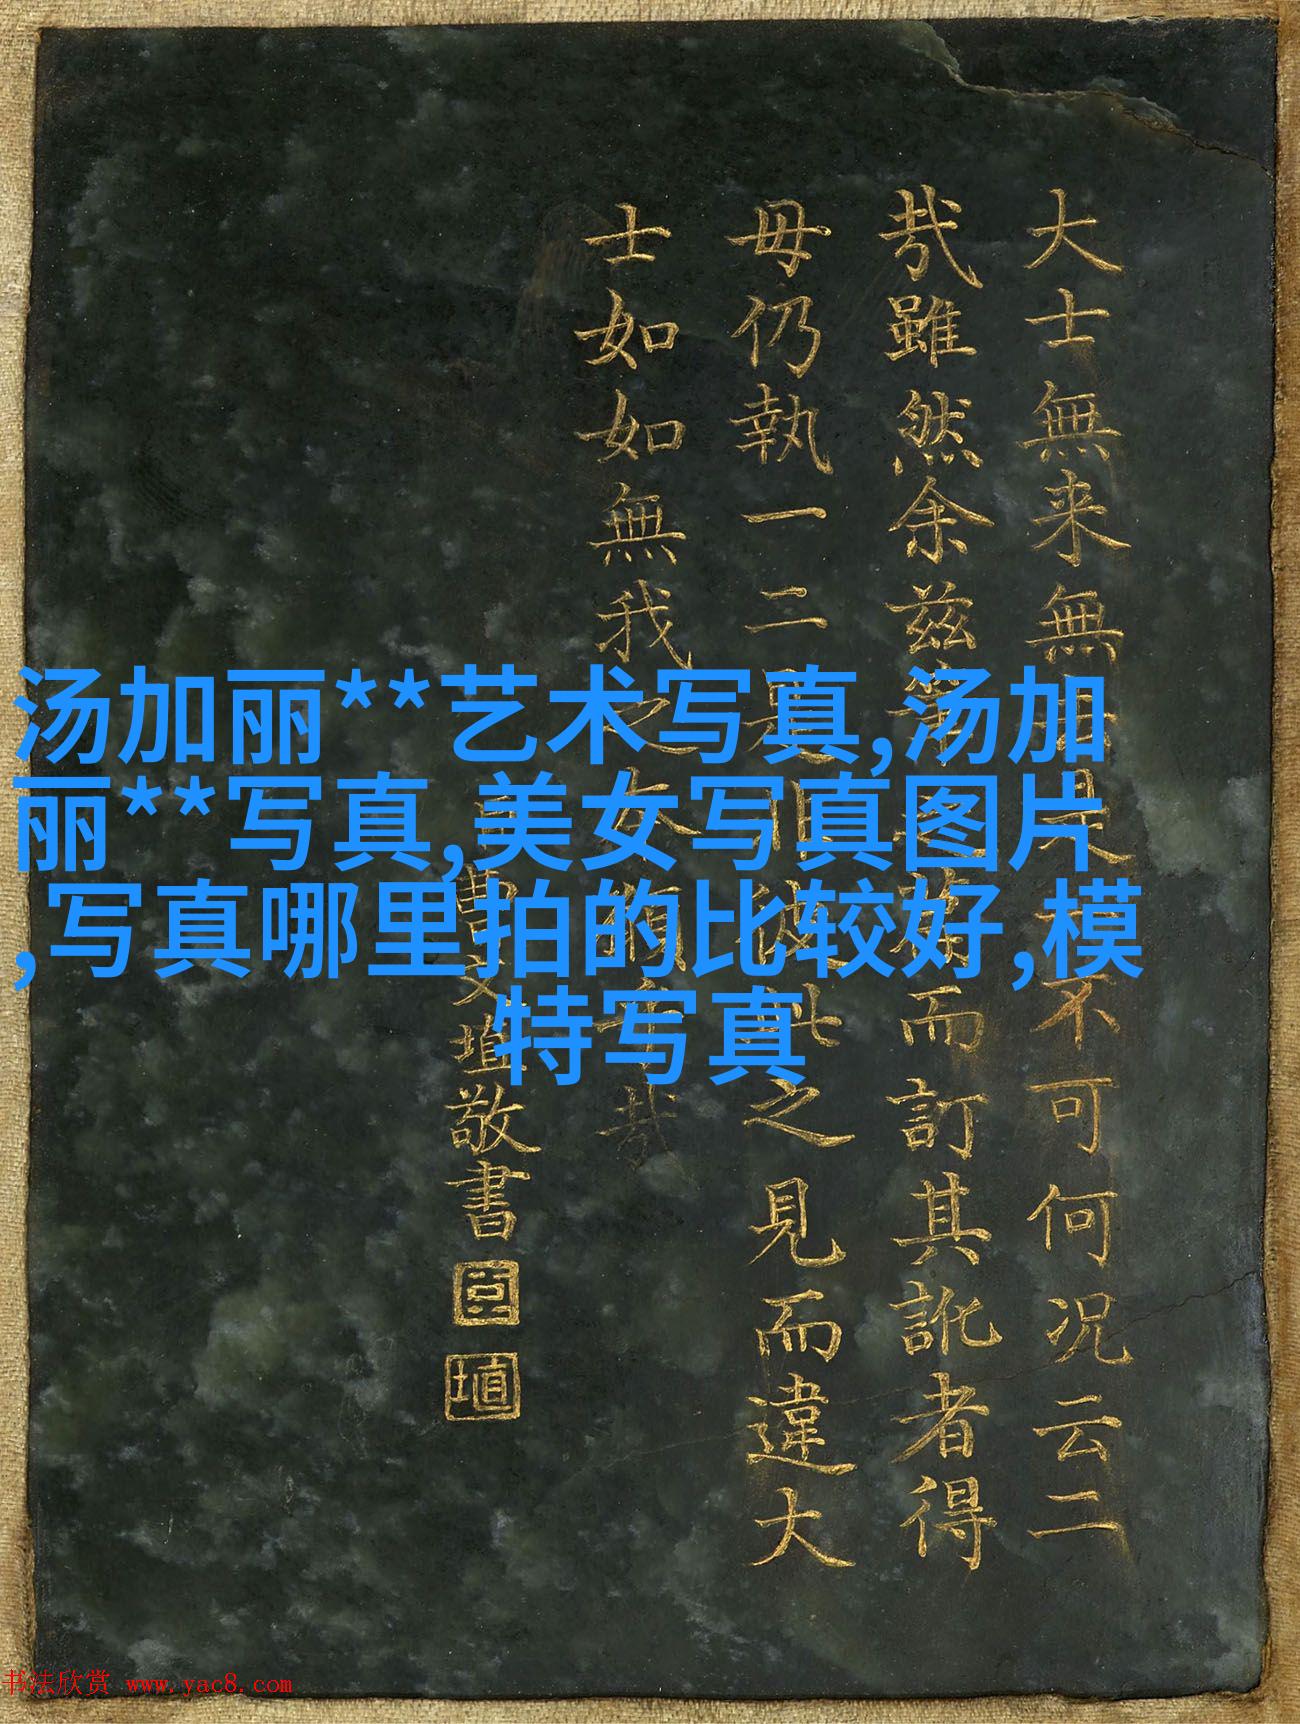 大士無来無是不可何况云二
哉雖然余兹而訂其訛者得
毋仍執一二是彼此之見而違大
士如如無我之本願乎哉
曹文埴敬書
臣
埴
汤加丽**艺术写真,汤加
丽**写真,美女写真图片
,写真哪里拍的比较好,模
特写真
书法欣赏 www.yac8.com